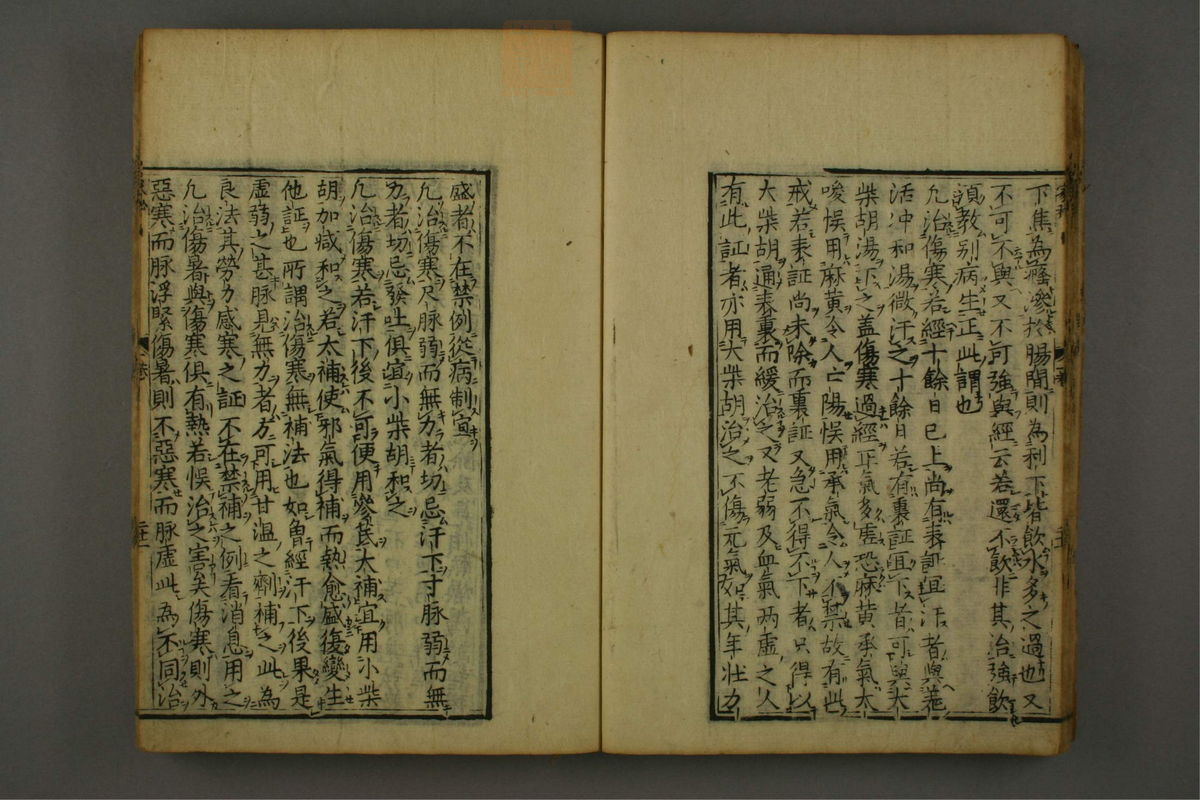 下焦為癃滲於腸間則為利下皆飲水多之過也又
不可不與又不可強與經云若還不飲非其治強飲
須教別病生正此謂也
凡治傷寒若經十餘日已上尚有表証宜汗者與羗
活冲和湯微汗之十餘日若有裏証宜下者可與大
柴胡湯下之盖傷寒過經正氣多虚恐麻黄承氣太
唆悞用麻黄令人亡陽悞用承氣令人不禁故有此
戒若表証尚未除而裏証又急不得不下者只得以
大柴胡通表裏而緩治之又老弱及血氣两虚之人
有此証者亦用大柴胡治之不傷元氣如其年壮力
盛者不在禁例從病制宜
凡治傷寒尺脉弱而無力者切忌汗下寸脉弱而無
力者切忌發吐俱宜小柴胡和之
凡治傷寒若汗下後不可便用參茋大補宜用小柴
胡加减和之若太補使邪氣得補而熱愈盛復變生
他証也所謂治傷寒無補法也如曽經汗下後果是
虚弱之甚脉見無力者方可用甘温之劑補之此為
良法其勞力感寒之証不在禁補之例看消息用之
凡治傷暑與傷寒俱有熱若悞治之害矣傷寒則外
惡寒而脉浮緊傷暑則不惡寒而脉虚此為不同治